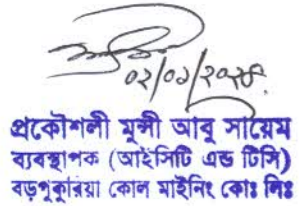 ০২/০১/২০২৪
প্রকৌশলী মুন্সী আবু সায়েম
ব্যবস্থাপক (আইসিটি এন্ড টিসি)
বড়পুকুরিয়া কোল মাইনিং কোঃ লিঃ